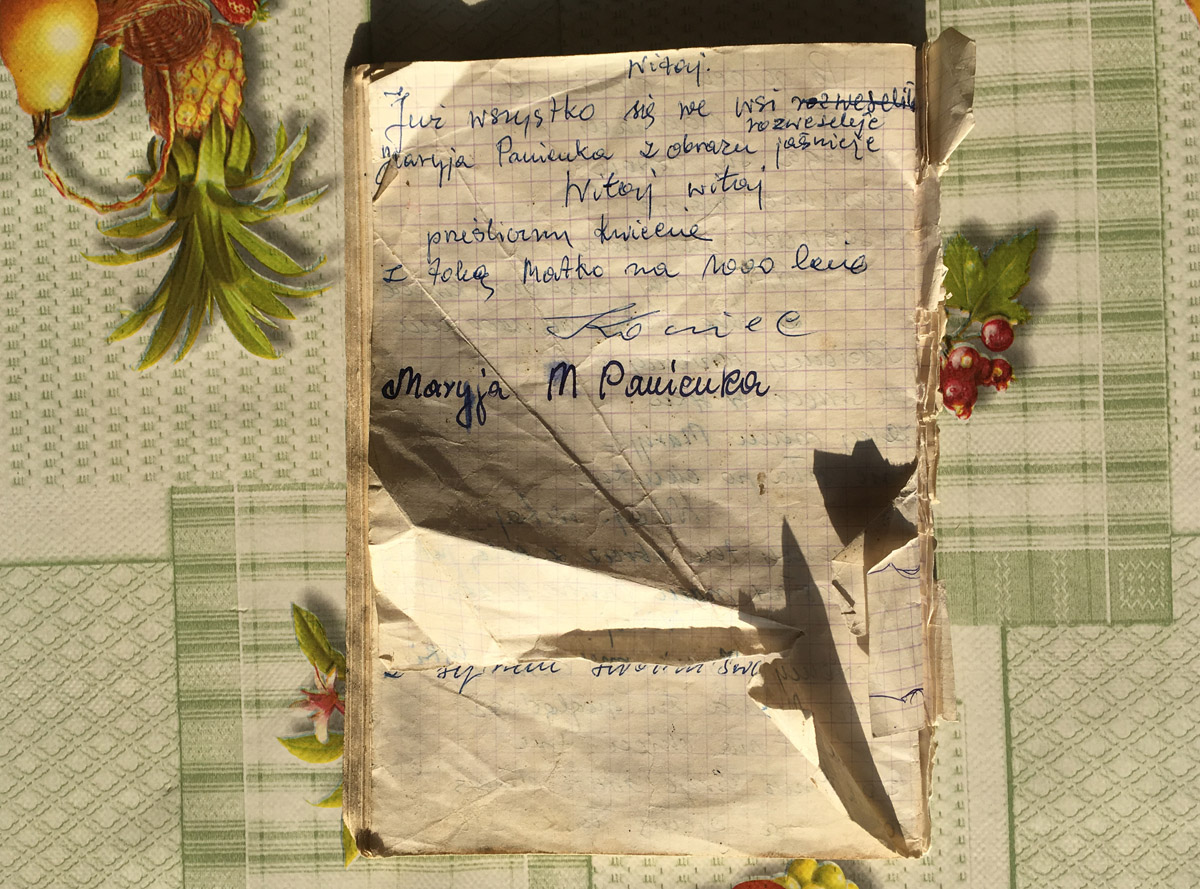 Witaj.
Już wszystko się we wsi rozweselił
rozweseleje
Maryja Panienka z obrazu jaśnieje
Witaj witaj
prześliczny kwiecie
z Matko na 1000 lecie
Koniec
Maryja M Panienka
z synem swoim